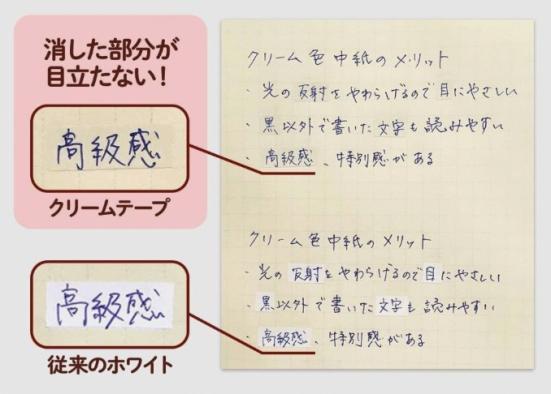 消した部分が
目立たない!
高級感
クリームテープ
高級感
従来のホワイト
クリーム色中紙のメリット
・光の反射をやわらげるので目にやさしい
・黒以外で書いた文字も読みやすい
・高級感、特別感がある
クリーム色中紙のメリット
・光の反射をやわらげるので目にやさしい
・黒以外で書いた文字も読みやすい
・高級感、特別感がある